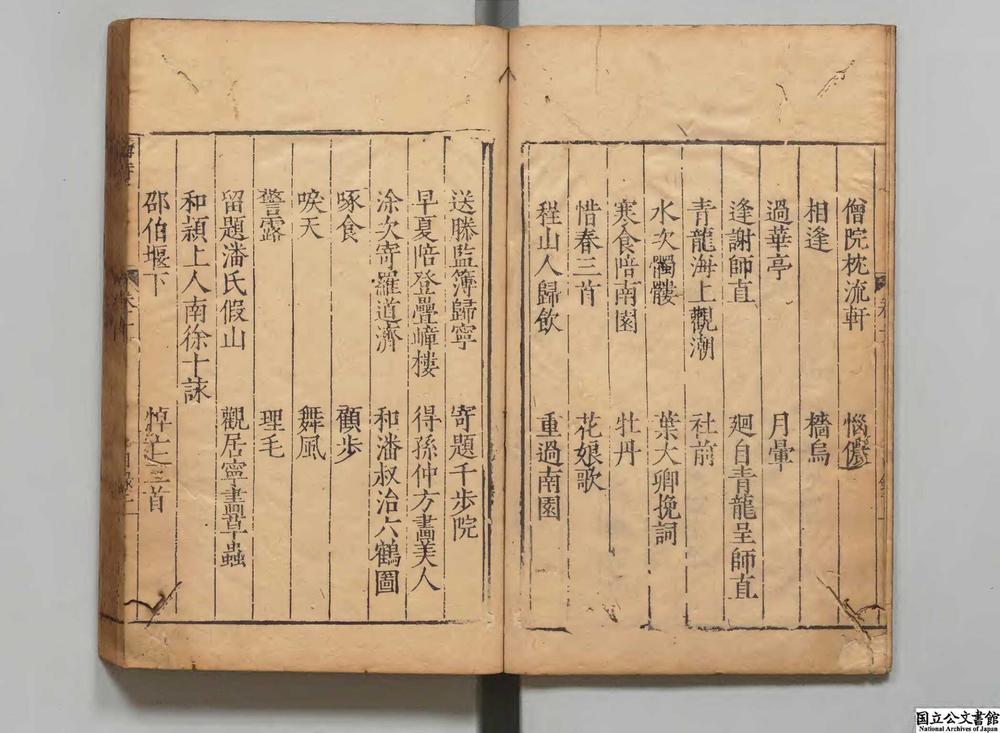 僧院枕流軒 惱儂
相逢 檣烏
過華亭 月暈
逢謝師直 廻自青龍呈師直
青龍海上觀潮 社前
水次髑髏 葉大卿挽詞
寒食陪南園 牡丹
惜春三首 花娘歌
程山人歸飲 重過南園
送滕監簿歸寧 寄題千步院
早夏陪登疊嶂樓 得孫仲方畫美人
涂次寄羅道濟 和潘叔治六鶴圖
啄食 顧步
唳天 舞風
警露 理毛
留題潘氏假山 觀居寧畫草蟲
和穎上人南徐十詠
邵伯堰下 悼亡三首
国立公文書館
National Archives of Japan